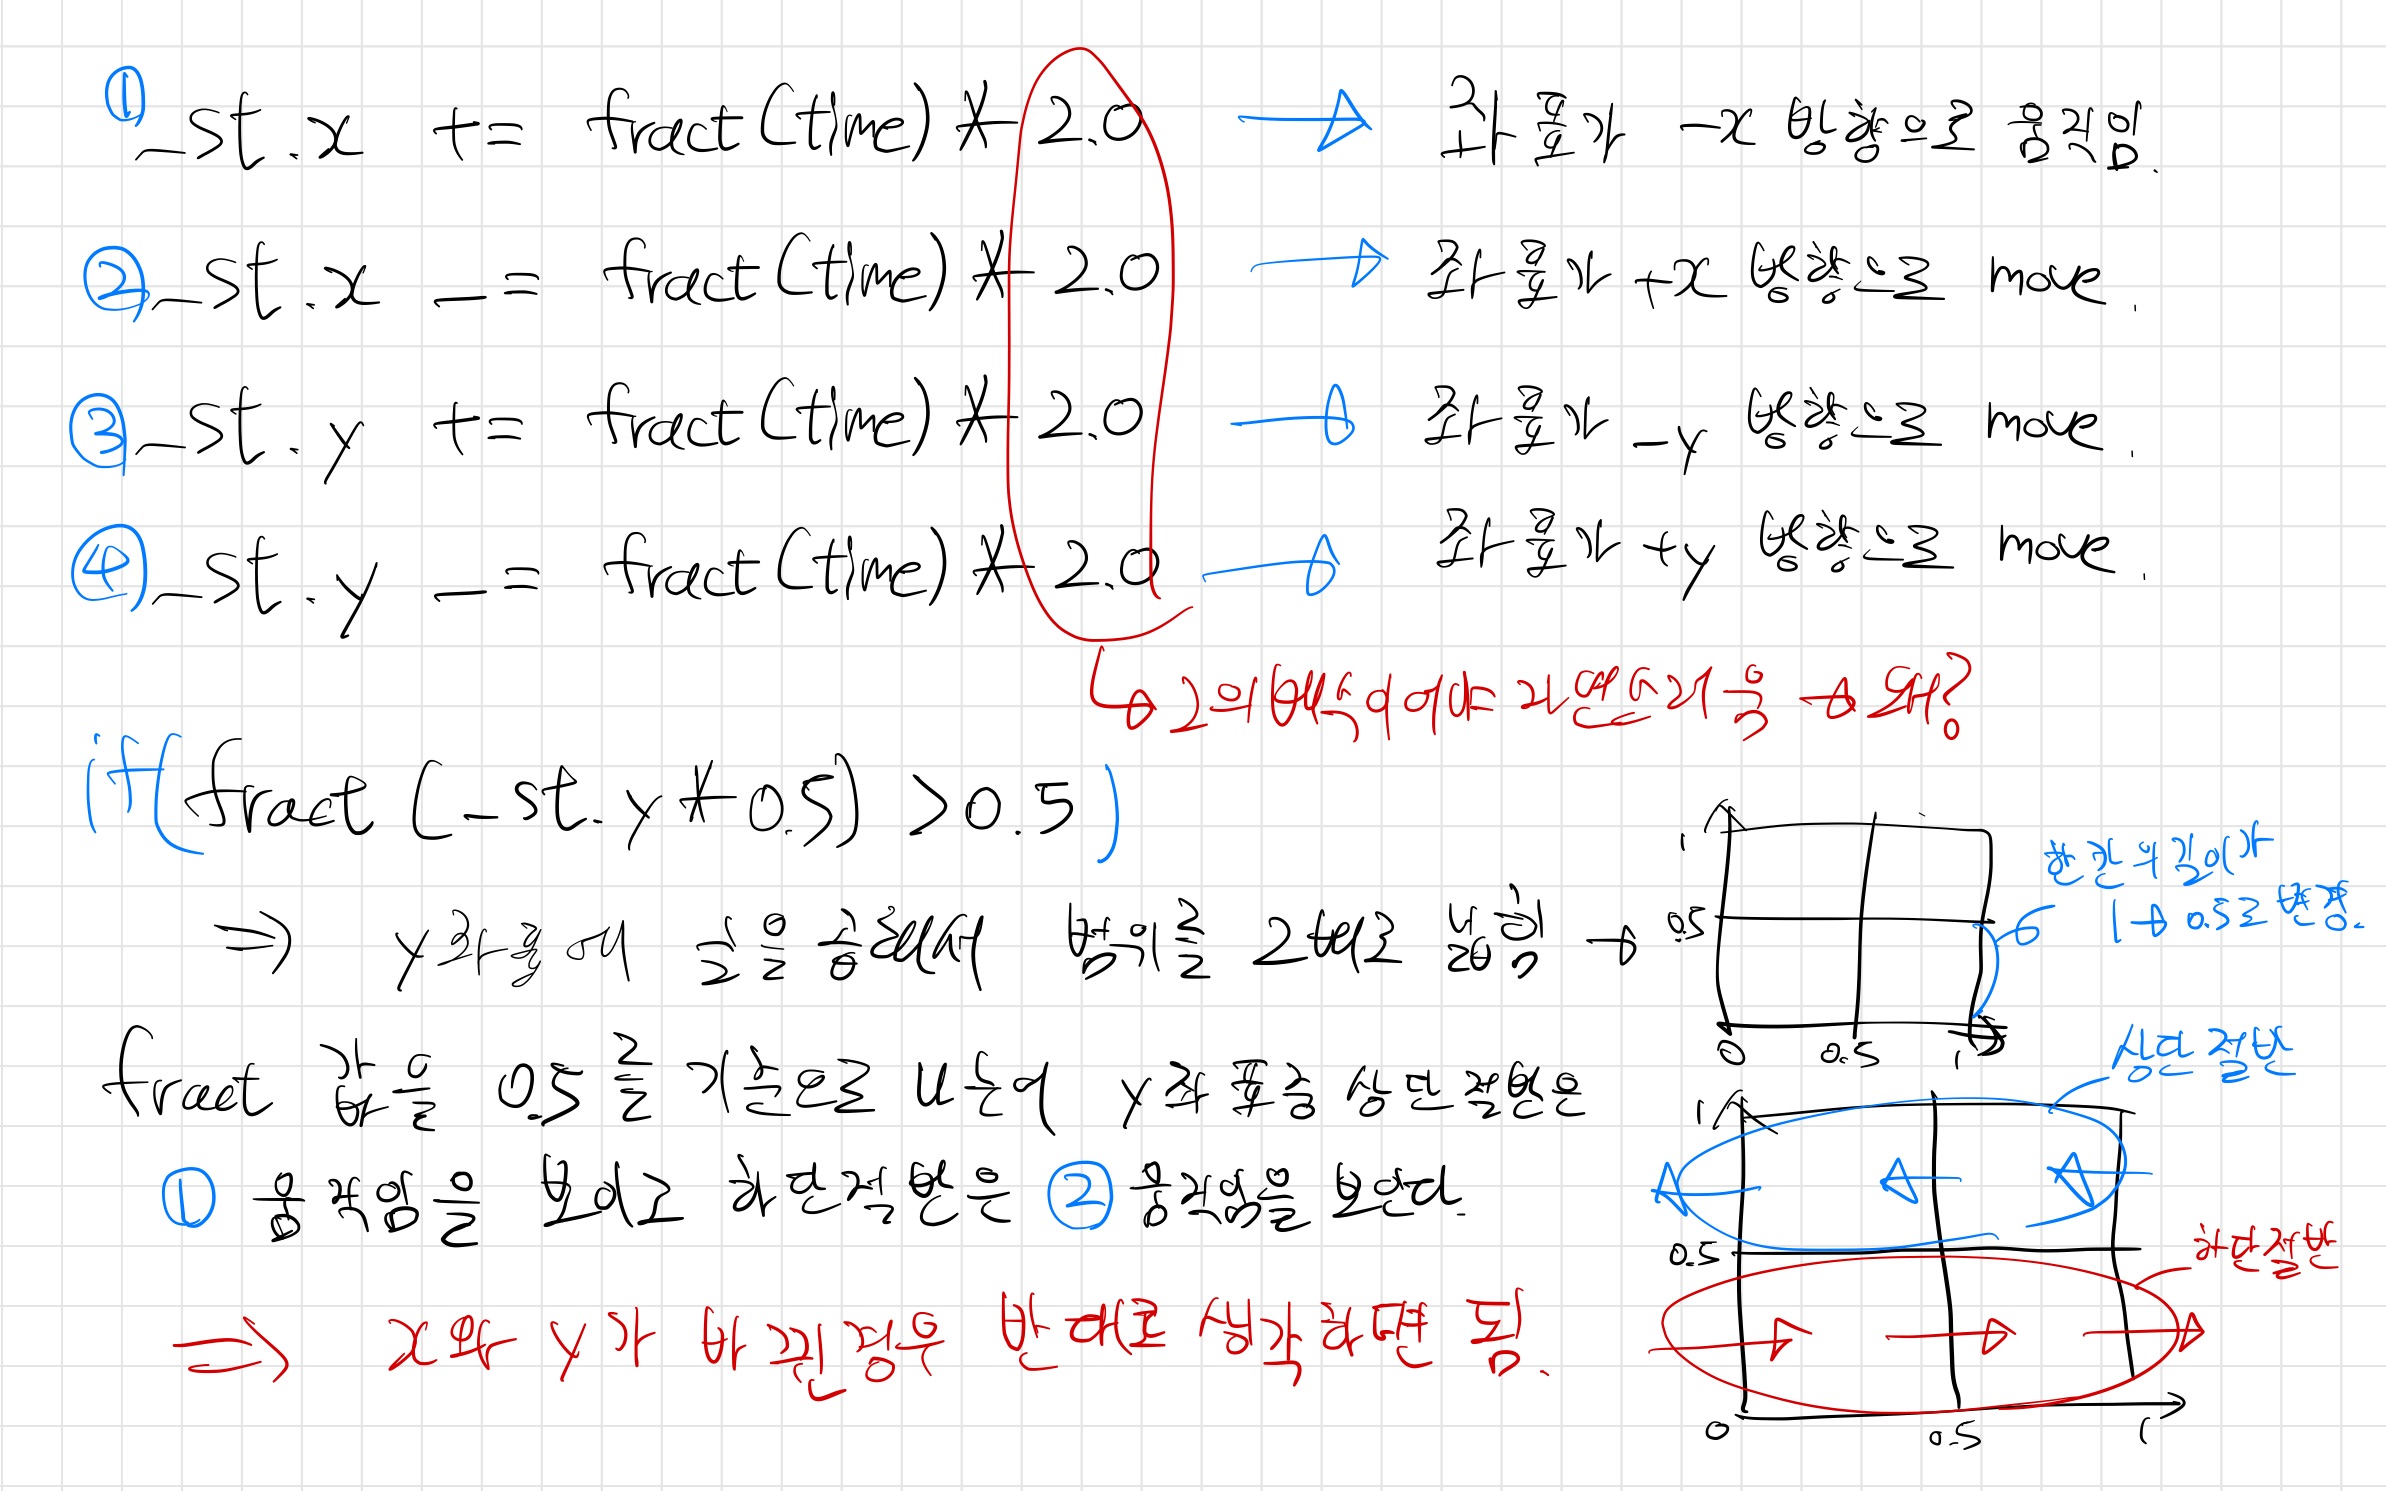 ① _st.x += fract(time) * 2.0 → 좌표가 -x 방향으로 움직임.
② _st.x -= fract(time) * 2.0 → 좌표가 +x 방향으로 move.
③ _st.y += fract(time) * 2.0 → 좌표가 -y 방향으로 move.
④ _st.y -= fract(time) * 2.0 → 좌표가 +y 방향으로 move.
↳ 2의 배수여야 자연스러움 → 왜?
if(fract(_st.y * 0.5) > 0.5)
⇒ y좌표에 1/2을 곱해서 범위를 2배로 넓힘 →
1
0.5
0 0.5 1
한칸의 길이가
1 → 0.5로 변경.
fract 값을 0.5를 기준으로 나누어 y좌표중 상단절반은
① 움직임을 보이고 하단절반은 ② 움직임을 보인다.
⇒ x와 y가 바뀐경우 반대로 생각하면 됨.
상단절반
1
0.5
하단절반
0 0.5 1